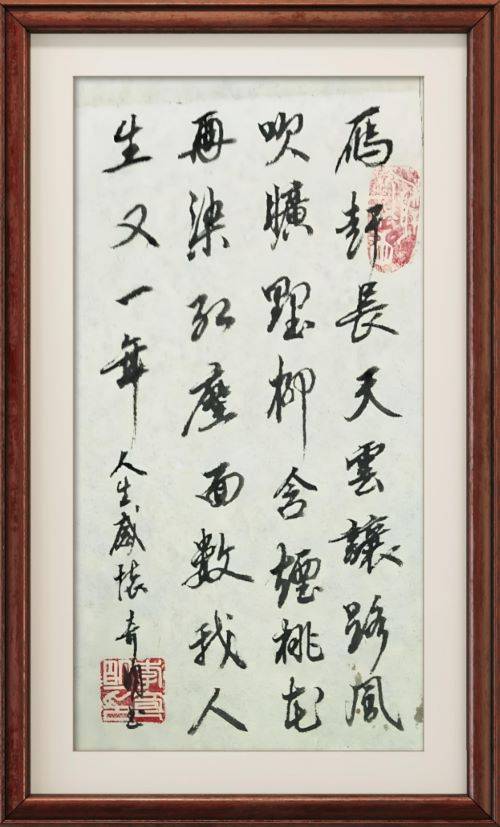 鴈長天雲讓路風
吹曠野柳含煙桃花
再染紅塵面數我人
生又一年
人生感懷 奇明书